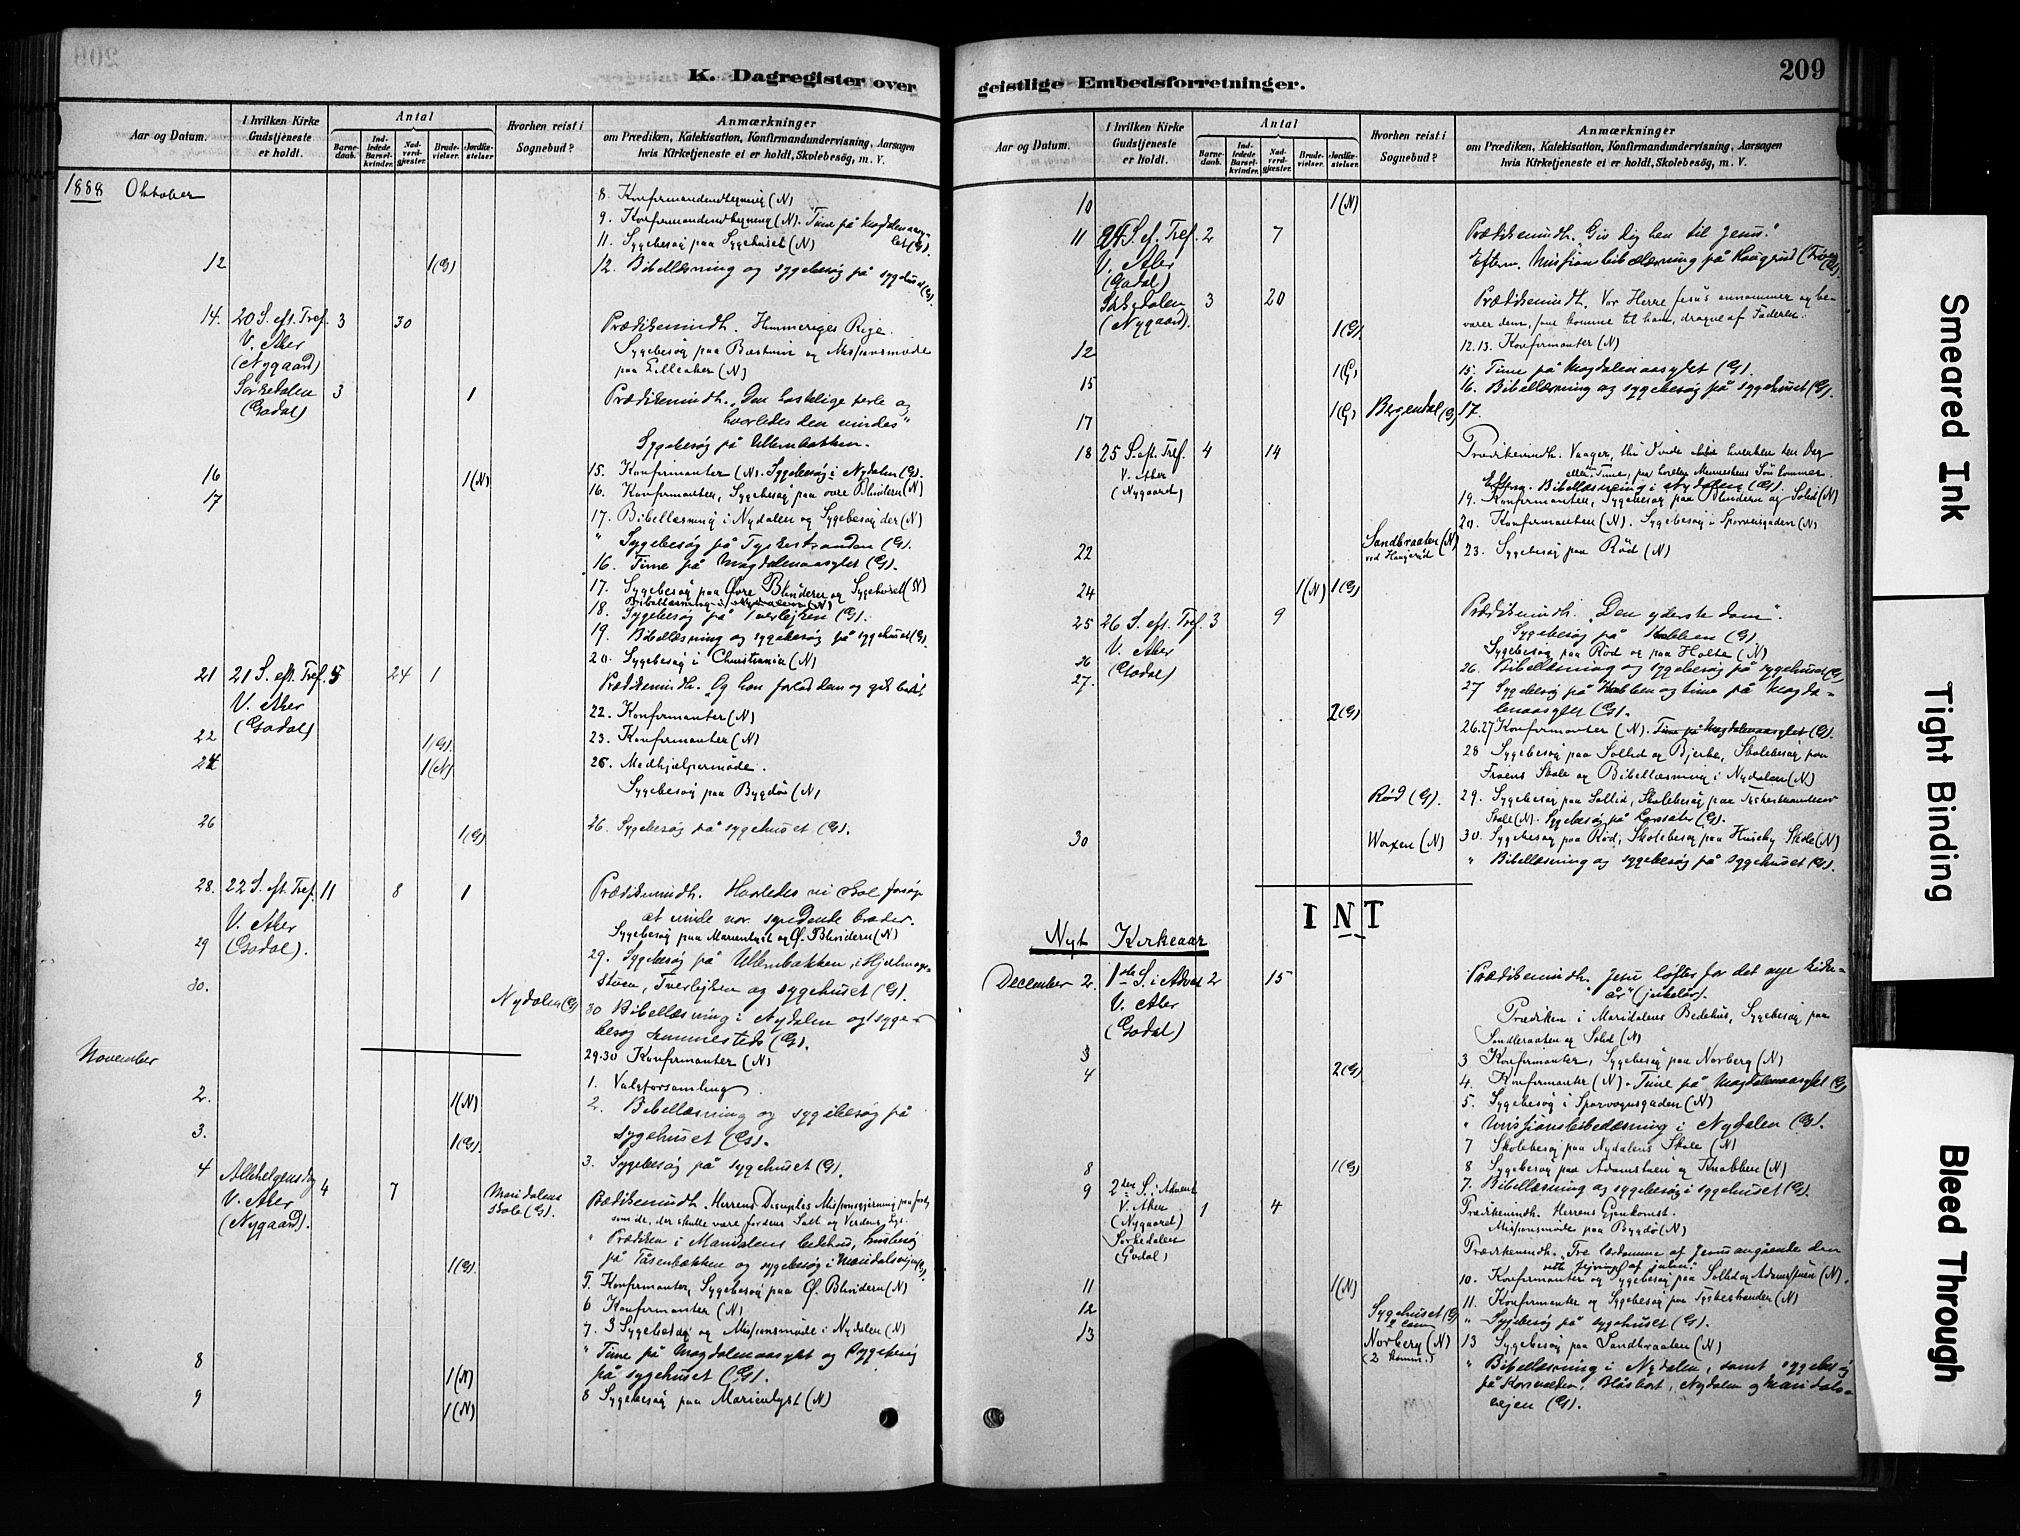 K. Dagregister over
Aar og Datum.
I hvilken Kirke
Gudstjeneste
er holdt.
Antal
Barne-
daab.
Ind-
ledede
Barsel-
kvinder.
Nad-
verd-
gjæster.
Brude-
vielser.
Jordfæ-
stelser
Hvorhen reist i
Sognebud?
Anmærkninger
om Prædiken, Katekisation, Konfirmandundervisning, Aarsagen
hvis Kirketjeneste ei er holdt, Skolebesøg, m. V.
1888 Oktober
8. Konfirmandudtegning (N)
9. Konfirmandudtegning (N). Time på Magdalenaasy-
let (G).
11. Sygebesøg paa Sygehuset (N)
12 1(G) 12. Bibellæsning og sygebesøg på sygehuset (G).
14. 20 S. eft. Tref. 3 30 Prædikenindh. Himmeriges Rige.
V. Aker
(Nygaard)
Sygebesøg paa Bæstum og Missionsmøde
paa Lilleaker (N)
Sørkedalen 3 1 Prædikenindh. "Den kostelige perle og
(Godal) hvorledes den vindes"
Sygebesøg på Ullernbakken.
15. Konfirmanter (N). Sygebesøg i Nydalen (G).
16 1(N) 16. Konfirmanter, Sygebesøg paa øvre Blindern (N)
17 17. Bibellæsning i Nydalen og Sygebesøg der (N)
" Sygebesøg på Tyskestranden (G).
16. Time på Magdalenaasylet (G).
17. Sygebesøg paa Øvre Blindern og Sygehuset (N)
Bibellæsning i Nydalen (N)
18. Sygebesøg på Tverlejren (G).
19. Bibellæsning og sygebesøg på sygehuset (G).
20. Sygebesøg i Christiania (N)
21 21 S. eft. Tref. 5 24 1 Prædikenindh. "Og han forlod dem og gik bort"
V. Aker
(Godal)
22. Konfirmanter (N)
22 1(G) 23. Konfirmanter (N)
24 1(N) 25. Medhjælpermøde.
Sygebesøg paa Bygdø (N)
26 1(G) 26. Sygebesøg på sygehuset (G).
28. 22 S. eft. Tref. 11 8 1 Prædikenindh. Hvorledes vi skal forsøge
V. Aker
(Godal).
at vinde vor syndende broder.
Sygebesøg paa Marienlyst og Ø. Blindern (N)
29 29. Sygebesøg på Ullernbakken, i Hjelmage-
stuen, Tverlejren og sygehuset (G).
30. Nydalen (G) 30 Bibellæsning i Nydalen og syge-
besøg sammesteds (G).
29.30 Konfirmanter (N)
November
1. Valgforsamling
2. 1(N) 2. Bibellæsning og sygebesøg på
sygehuset (G).
3. 1(G) 3. Sygebesøg på sygehuset (G).
4 Allehelgensdag 4 7 Maridalens
V. Aker
(Nygaard).
skole (G).
Prædikenindh. Herrens Disciples Missionsgjerning paa Jord,
som de, der skulle være Jordens Salt og Verdens Lys.
" Prædiken i Maridalens bedehus, husbesøg
1(G) på Tåsenbakken og sygebesøg i Maridalsvejen (G).
5. Konfirmanter, Sygebesøg paa Ø. Blindern (N)
6 Konfirmanter (N)
7. 3 Sygebesøg og Missionsmøde i Nydalen (N)
8 1(N) " Time på Magdalenaasylet og Sygebesøg
på sygehuset (G).
9 1(N) 8 Sygebesøg paa Marienlyst (N)
geistlige Embedsforretninger.
209
Aar og Datum.
I hvilken Kirke
Gudstjeneste
er holdt.
Antal
Barne-
daab.
Ind-
ledede
Barsel-
kvinder.
Nad-
verd-
gjæster.
Brude-
vielser.
Jordfæ-
stelser.
Hvorhen reist i
Sognebud?
Anmærkninger
om Prædiken, Katekisation, Konfirmandundervisning, Aarsagen
hvis Kirketjeneste ei er holdt, Skolebesøg, m. V.
10 1(N)
11 24 S. ef. Tref. 2 7 Prædikenindh. "Giv dig hen til Jesus."
V. Aker
(Godal)
Efterm. Missionsbibellæsning på Haugerud
Sørkedalen 3 20 Prædikenindh. Vor Herre Jesus annammer og be-
(Nygaard).
varer dem, som komme til ham, dragne af Faderen.
12 1(G) 12.13. Konfirmanter (N)
15 1(G) 15. Time på Magdalenaasylet (G).
16. Bibellæsning og sygebesøg på sygehuset (G).
17 1(G) Bergendal (G) 17.
18 25 S. eft. Tref. 4 14 Prædikenindh. Vaager, thi I vide ikke hverken den Dag
V. Aker
(Nygaard)
eller Time, paa hvilken Menneskens Søn kommer.
Efterm. Bibellæsning i Nydalen (G).
19. Konfirmanter, Sygebesøg paa Blindern og Solid (N)
20. Konfirmanter (N). Sygebesøg i Sporveisgaden (N)
22 Sandbraaten (N)
ved Haugerud
23. Sygebesøg paa Rød (N)
24 1(N) 1(G)
25 26 S. eft. Tref. 3 9 Prædikenindh. "Den yderste dom".
V. Aker
(Godal)
Sygebesøg på Kabben (G)
Sygebesøg paa Rød og paa Holte (N)
26 26. Bibellæsning og sygebesøg på sygehuset (G)
27. 2(G) 27 Sygebesøg på Kabben og time på Magda-
lenaasylet (G).
26.27 Konfirmanter (N). Time på Magdalenaasylet (G).
28 Sygebesøg paa Sollid og Bjerke, Skolebesøg paa
Frøens Skole og Bibellæsning i Nydalen (N)
Rød (G). 29. Sygebesøg paa Sollid, Skolebesøg paa Tyskestrandens
Skole (N). Sygebesøg på Korsæter (G).
30 Voxen (N) 30. Sygebesøg paa Rød, Skolebesøg paa Huseby Skole (N)
" Bibellæsning og sygebesøg på sygehuset (G).
I N T
Nyt Kirkeaar
December 2. 1ste S. i Advent 2 15 Prædikenindh. "Jesu løfter for det nye kirke-
V. Aker
(Godal)
år" (jubelår).
Prædiken i Maridalens Bedehus, Sygebesøg paa
Sandbraaten og Solid (N)
3 3 Konfirmanter, Sygebesøg paa Norberg (N)
4 2(G) 4. Konfirmanter (N). Time på Magdalenaasylet (G)
5. Sygebesøg i Sporvognsgaden (N)
" Missionsbibellæsning i Nydalen (G).
7 Skolebesøg paa Nydalens Skole (N)
8 1(G) 8 Sygebesøg paa Adamstuen og Knabben (N)
7. Bibellæsning og sygebesøg i sygehuset (G).
9 2den S. i Advent
V. Aker 1 4
(Nygaard)
Prædikenindh. Herrens Gjenkomst.
Missionsmøde paa Bygdø (N)
Sørkedalen
(Godal)
Prædikenindh. "Tre lærdomme af Jesus angående den
rette fejring af julen."
10. Konfirmanter og Sygebesøg paa Sollid og Adamstuen (N).
11 1(N) 11. Konfirmanter og Sygebesøg paa Tyskestranden (N)
12 Sygehuset (G)
" Sygebesøg på sygehuset (G).
13 Norberg (N)
(2 komm.)
13 Sygebesøg paa Sandbraaten (N)
" Bibellæsning i Nydalen, samt sygebesøg
på Korsvolden, Blåsbort, Nydalen og Maridals-
vejen (G).
Smeared Ink
Tight Binding
Bleed Through